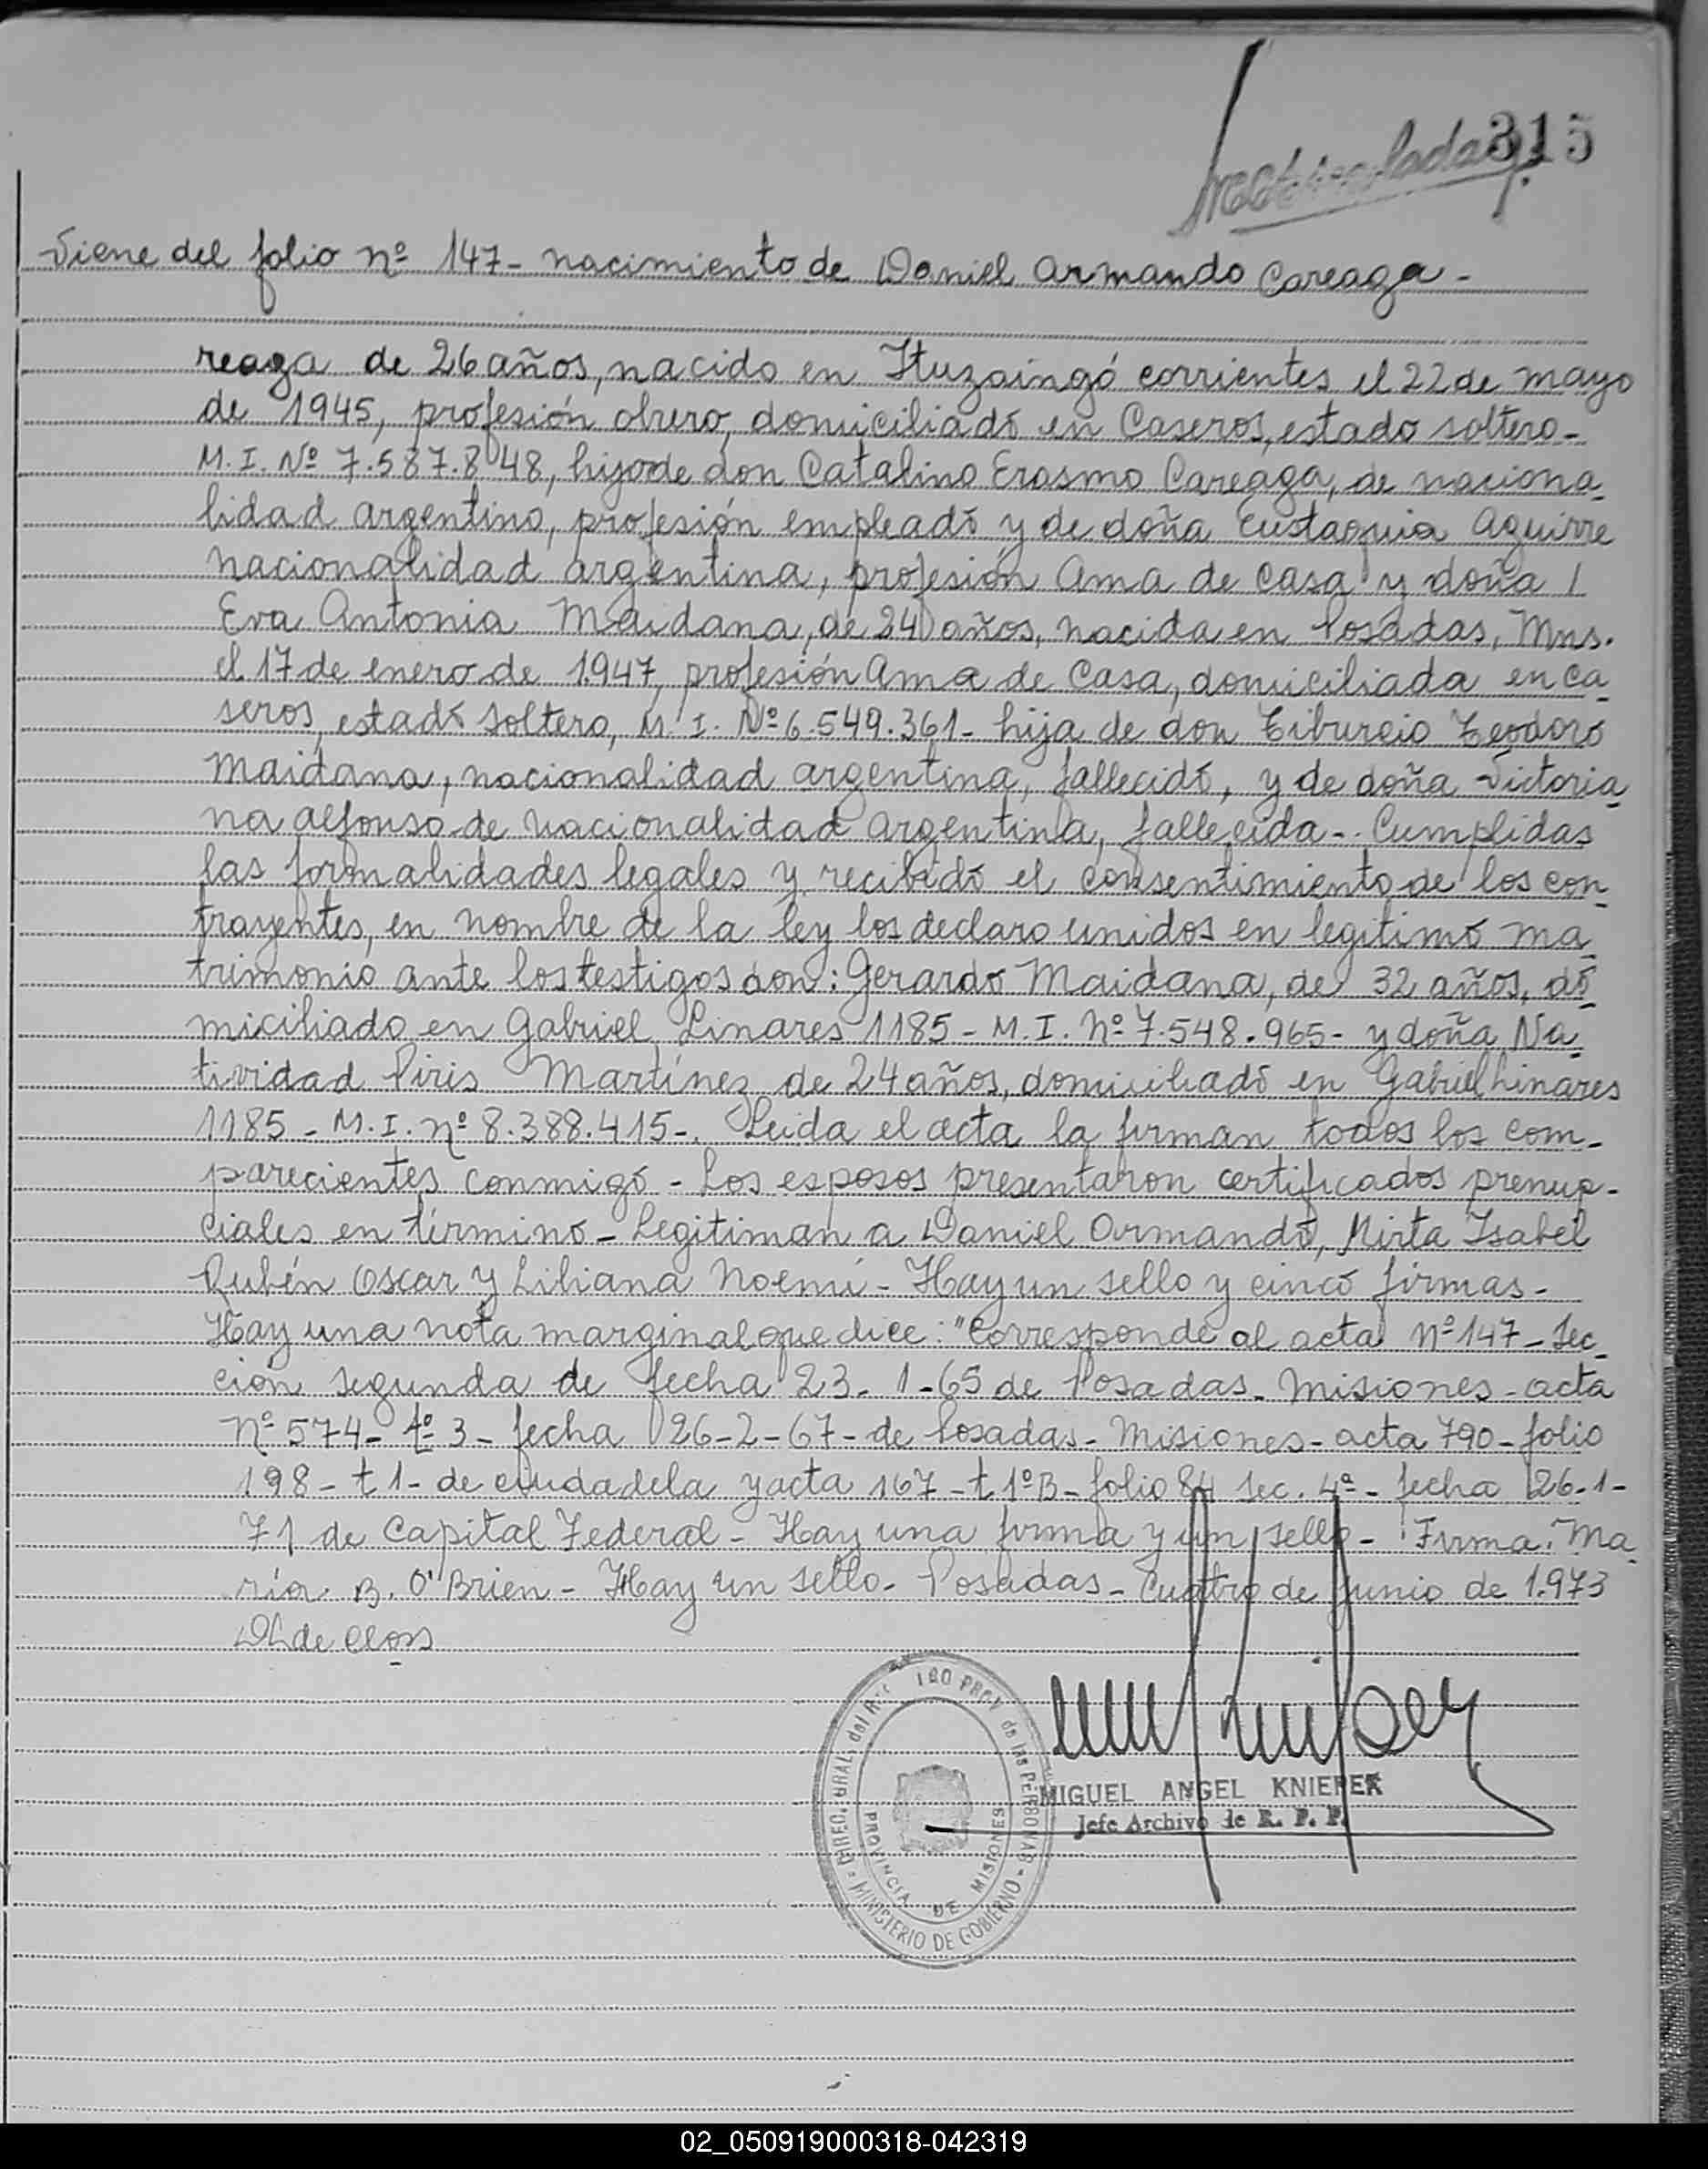 315
Viene del folio nº 147- nacimiento de Daniel Armando Careaga-
reaga de 26 años, nacido en Ituzaingó corrientes el 22 de mayo
de 1945, profesión obrero, domiciliado en Caseros, estado soltero-
M.I. Nº 7.587.848, hijo de don Catalino Erasmo Careaga, de naciona_
lidad argentino, profesión empleado y de doña Eustaquia Aguirre
nacionalidad argentina, profesión Ama de Casa y doña /
Eva Antonia Maidana, de 24 años, nacida en Posadas, Mns.
el 17 de enero de 1.947, profesión Ama de Casa, domiciliada en Ca_
seros, estado soltero, M.I. Nº 6.549.361- hija de don Tiburcio Teodoro
Maidana, nacionalidad argentina, fallecido, y de doña Victoria_
na Alfonso de nacionalidad argentina, fallecida-. Cumplidas
las formalidades legales y recibido el consentimiento de los con_
trayentes, en nombre de la ley los declaro unidos en legítimo ma_
trimonio ante los testigos don: Gerardo Maidana, de 32 años, do_
miciliado en Gabriel Linares 1185- M.I. Nº 7.548.965- y doña Na_
tividad Piris Martínez de 24 años, domiciliado en Gabriel Linares
1185- M.I. nº 8.388.415-. Leida el acta la firman todos los com-
parecientes conmigo- Los esposos presentaron certificados prenup-
ciales en término- Legitiman a Daniel Armando, Mirta Isabel
Rubén Oscar y Liliana Noemí- Hay un sello y cinco firmas-
Hay una nota marginal que dice: "Corresponde al acta Nº 147- Sec_
ción segunda de fecha 23-1-65 de Posadas- Misiones- acta
Nº 574- tº 3- fecha 26-2-67- de Posadas- Misiones- acta 790- folio
198- t 1- de ciudadela y acta 167- t 1º B- folio 84 Sec. 4ª- fecha 26-1-
71 de Capital Federal- Hay una firma y un sello- Firma: Ma_
ría B. O'Brien- Hay un sello- Posadas- Cuatro de junio de 1.973
DIREC. GRAL. del PROV de las PERSONAS - MINISTERIO DE GOBIERNO -
PROVINCIA DE MISIONES
MIGUEL ANGEL KNIEPER
Jefe Archivo de R. P. P.
02_050919000318-042319